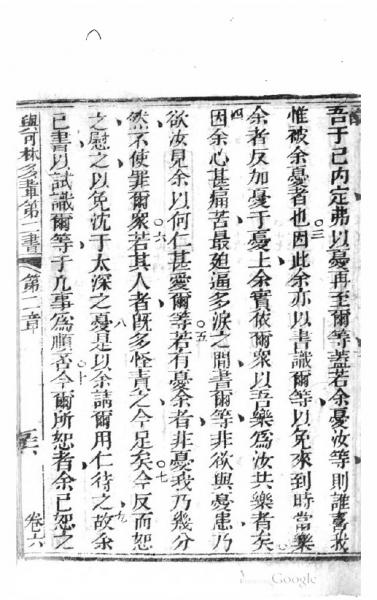 吾于己內定弗以憂再至爾等蓋若余憂汝等則誰喜我
惟被余憂者也因此余亦以書識爾等以免來到時當樂
余者反加憂于憂上余實依爾眾以吾樂為汝共樂者矣
因余心甚痛苦最廹逼多淚之間書爾等非欲與憂患乃
欲汝見余以何仁甚愛爾等若有憂余者非憂我乃幾分
然不使罪爾眾若其人者既多怪責之今足矣今反而恕
之慰之以免沈于太深之憂是以余請爾用仁待之故余
已書以試識爾等于凡事為順否今爾所恕者余已恕之
與可林多輩第二書 第二章 卷六
三
四
五
六
七
八
九
十
Google